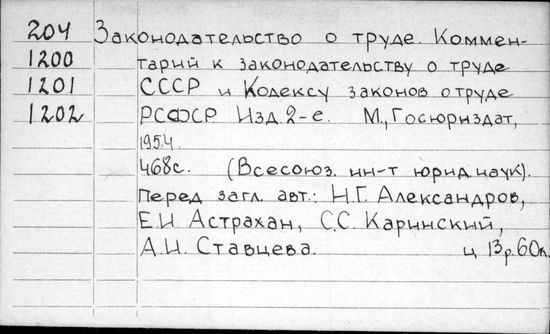 204 Законодательство о труде. Коммен-
1200 тарий к законодательству о труде
1201 СССР и Кодексу законов о труде
1202 РСФСР Изд. 2-е. М., Госюриздат,
1954.
468с. (Всесоюз. ин-т юрид. наук).
Перед загл. авт.: Н.Г. Александров,
Е.И. Астрахан, С.С. Каринский,
А.И. Ставцева. ц 13р.60к.